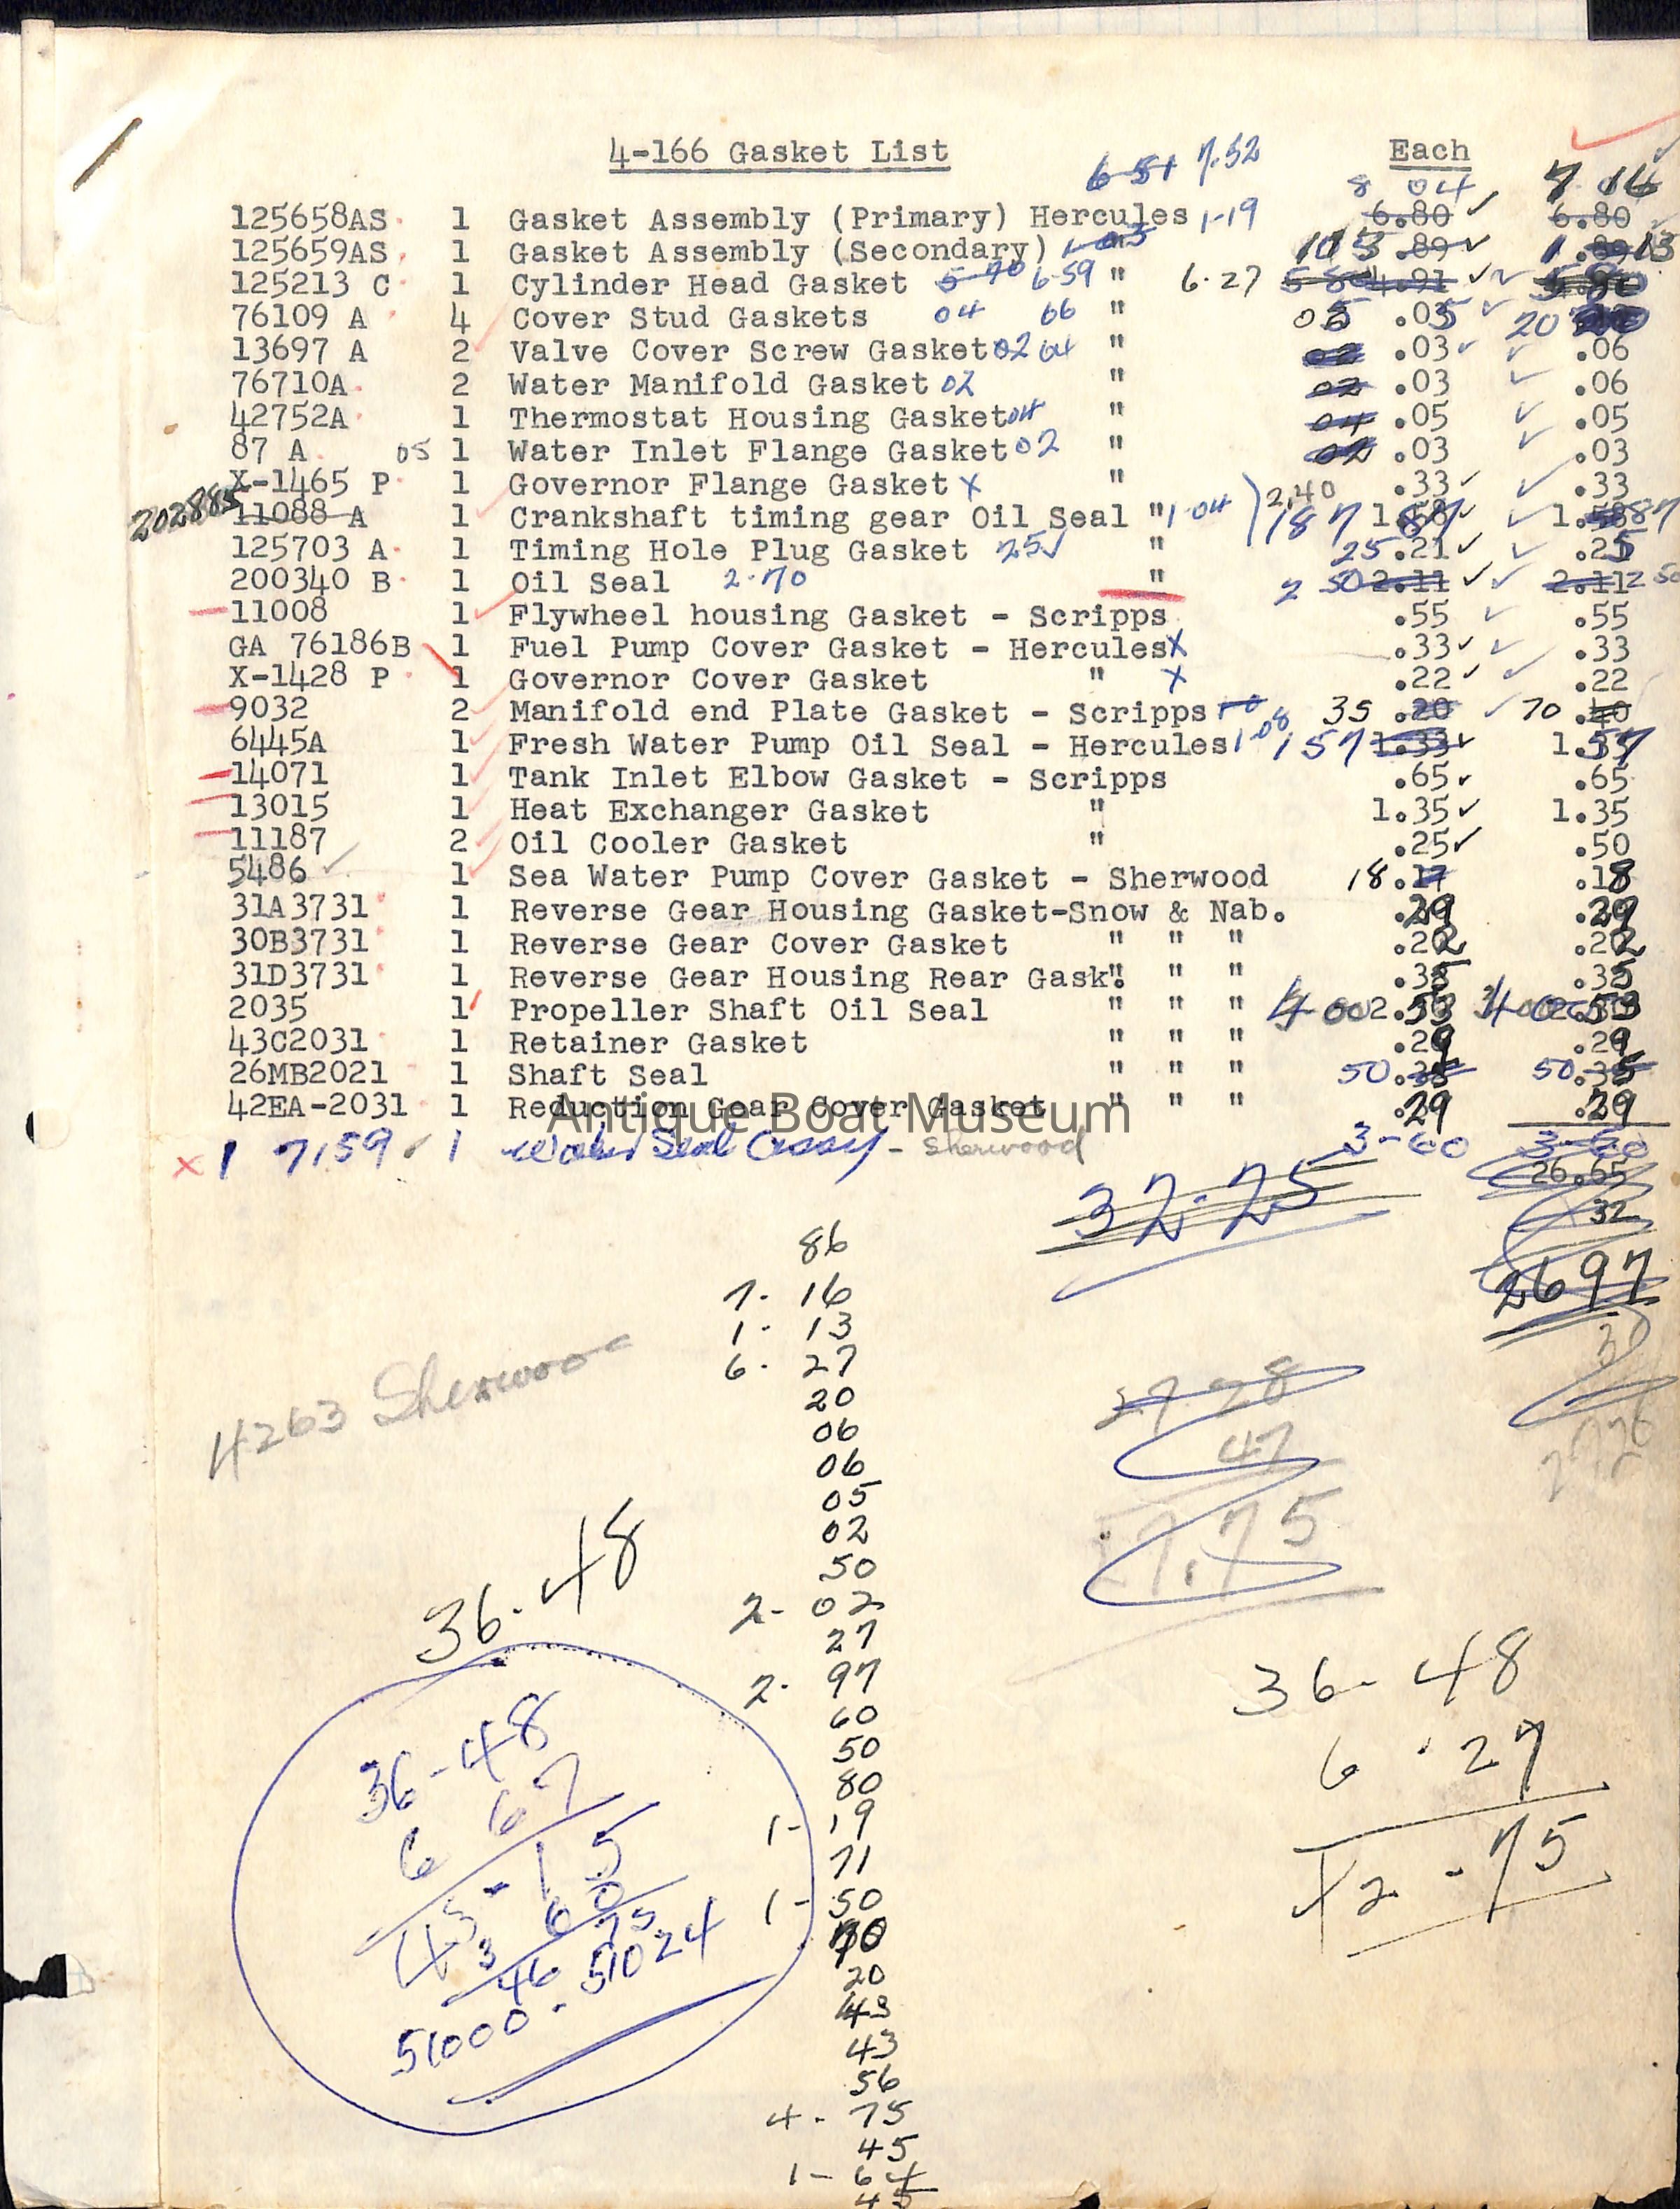 4-166 Gasket List 6-51 7.52 Each
8 04 7 16
125658AS 1 Gasket Assembly (Primary) Hercules 1-19 6.80 6.80
125659AS 1 Gasket Assembly (Secondary) 1-03 " .89 1. 13
125213 C 1 Cylinder Head Gasket 5-70 6-59 " 6.27 5 80 4.91
76109 A 4 Cover Stud Gaskets 04 06 " .03 20
13697 A 2 Valve Cover Screw Gasket 02 04 " 02 .03 .06
76710A 2 Water Manifold Gasket 02 " 02 .03 .06
42752A 1 Thermostat Housing Gasket 04 " 04 .05 .05
87 A 05 1 Water Inlet Flange Gasket 02 " 02 .03 .03
X-1465 P 1 Governor Flange Gasket X " .33 .33
202885 11088 A 1 Crankshaft timing gear Oil Seal " 1-04 2.40 187 1. 87 1. 87
125703 A 1 Timing Hole Plug Gasket 25 " 25 .21 .25
200340 B 1 Oil Seal 2-70 " 2 50 2.11 2.11 2 50
11008 1 Flywheel housing Gasket - Scripps .55 .55
GA 76186B 1 Fuel Pump Cover Gasket - Hercules X .33 .33
X-1428 P 1 Governor Cover Gasket " X .22 .22
9032 2 Manifold end Plate Gasket - Scripps 35 .20 70 .40
6445A 1 Fresh Water Pump Oil Seal - Hercules 1-08 1 57 1.33 1.57
14071 1 Tank Inlet Elbow Gasket - Scripps .65 .65
13015 1 Heat Exchanger Gasket " 1.35 1.35
11187 2 Oil Cooler Gasket " .25 .50
5486 1 Sea Water Pump Cover Gasket - Sherwood 18 .17 .18
31A3731 1 Reverse Gear Housing Gasket-Snow & Nab. .29 .29
30B3731 1 Reverse Gear Cover Gasket " " " .22 .22
31D3731 1 Reverse Gear Housing Rear Gask. " " " .35 .35
2035 1 Propeller Shaft Oil Seal " " " 4 00 2.53 4 00 2.53
43C2031 1 Retainer Gasket " " " .29 .29
26MB2021 1 Shaft Seal " " " 50 .35 50 .35
42EA-2031 1 Reduction Gear Cover Gasket " " " .29 .29
Antique Boat Museum
x 1 7159 1 Water Seal Assy - Sherwood 3-60 3-60
26.65
32.25 32
2697
86
7. 16
1. 13
6. 27
20
06
06
05
02
50
2- 02
27
2. 97
60
50
80
1- 19
71
1- 50
70
20
43
43
56
4. 75
45
1- 64
45
4263 Sherwood
27 28
47
27.75
2726
36.48
36-48
6 67
43.15
3 60
46 75
51000 - 51024
36-48
6.27
42-75